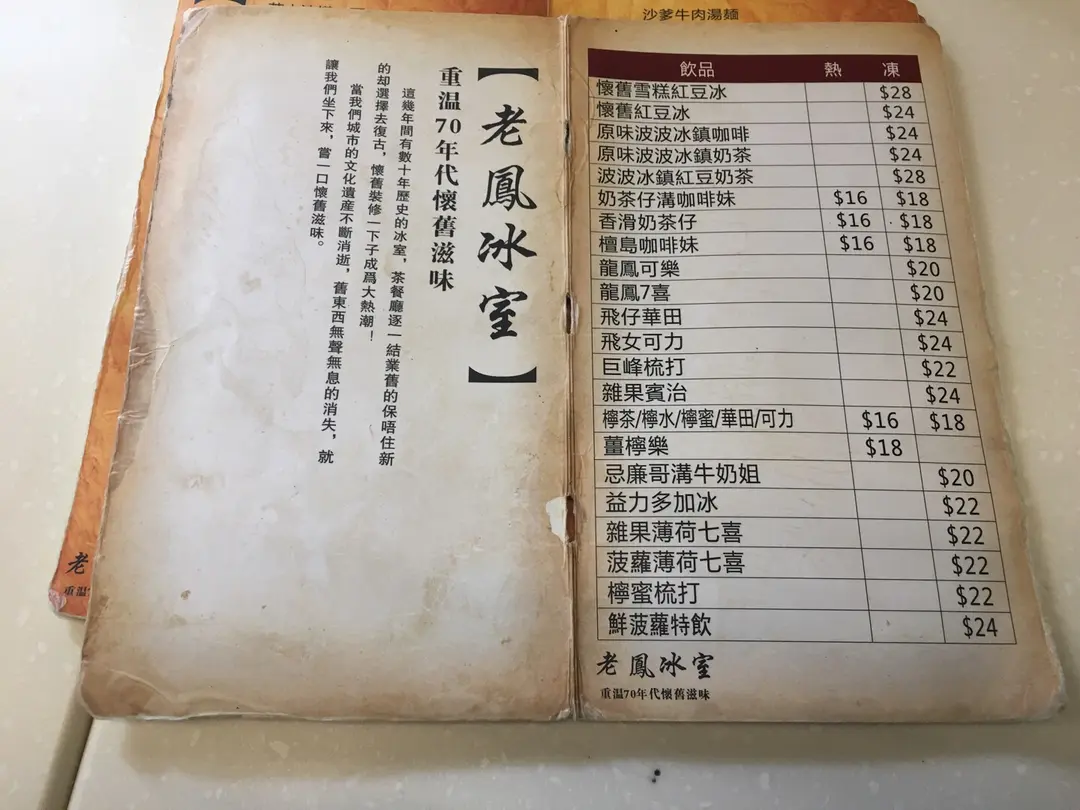 沙爹牛肉湯麵
【老鳳冰室】
重温70年代懷舊滋味
這幾年間有數十年歷史的冰室，茶餐廳逐一結業舊的保唔住新
的却選擇去復古，懷舊裝修一下子成爲大熱潮！
當我們城市的文化遺産不斷消逝，舊東西無聲無息的消失，就
讓我們坐下來，嘗一口懷舊滋味。
飲品 熱 凍
懷舊雪糕紅豆冰 $28
懷舊紅豆冰 $24
原味波波冰鎮咖啡 $24
原味波波冰鎮奶茶 $24
波波冰鎮紅豆奶茶 $28
奶茶仔溝咖啡妹 $16 $18
香滑奶茶仔 $16 $18
檀島咖啡妹 $16 $18
龍鳳可樂 $20
龍鳳7喜 $20
飛仔華田 $24
飛女可力 $24
巨峰梳打 $22
雜果賓治 $24
檸茶/檸水/檸蜜/華田/可力 $16 $18
薑檸樂 $18
忌廉哥溝牛奶姐 $20
益力多加冰 $22
雜果薄荷七喜 $22
菠蘿薄荷七喜 $22
檸蜜梳打 $22
鮮菠蘿特飲 $24
老鳳冰室
重温70年代懷舊滋味
老
重温